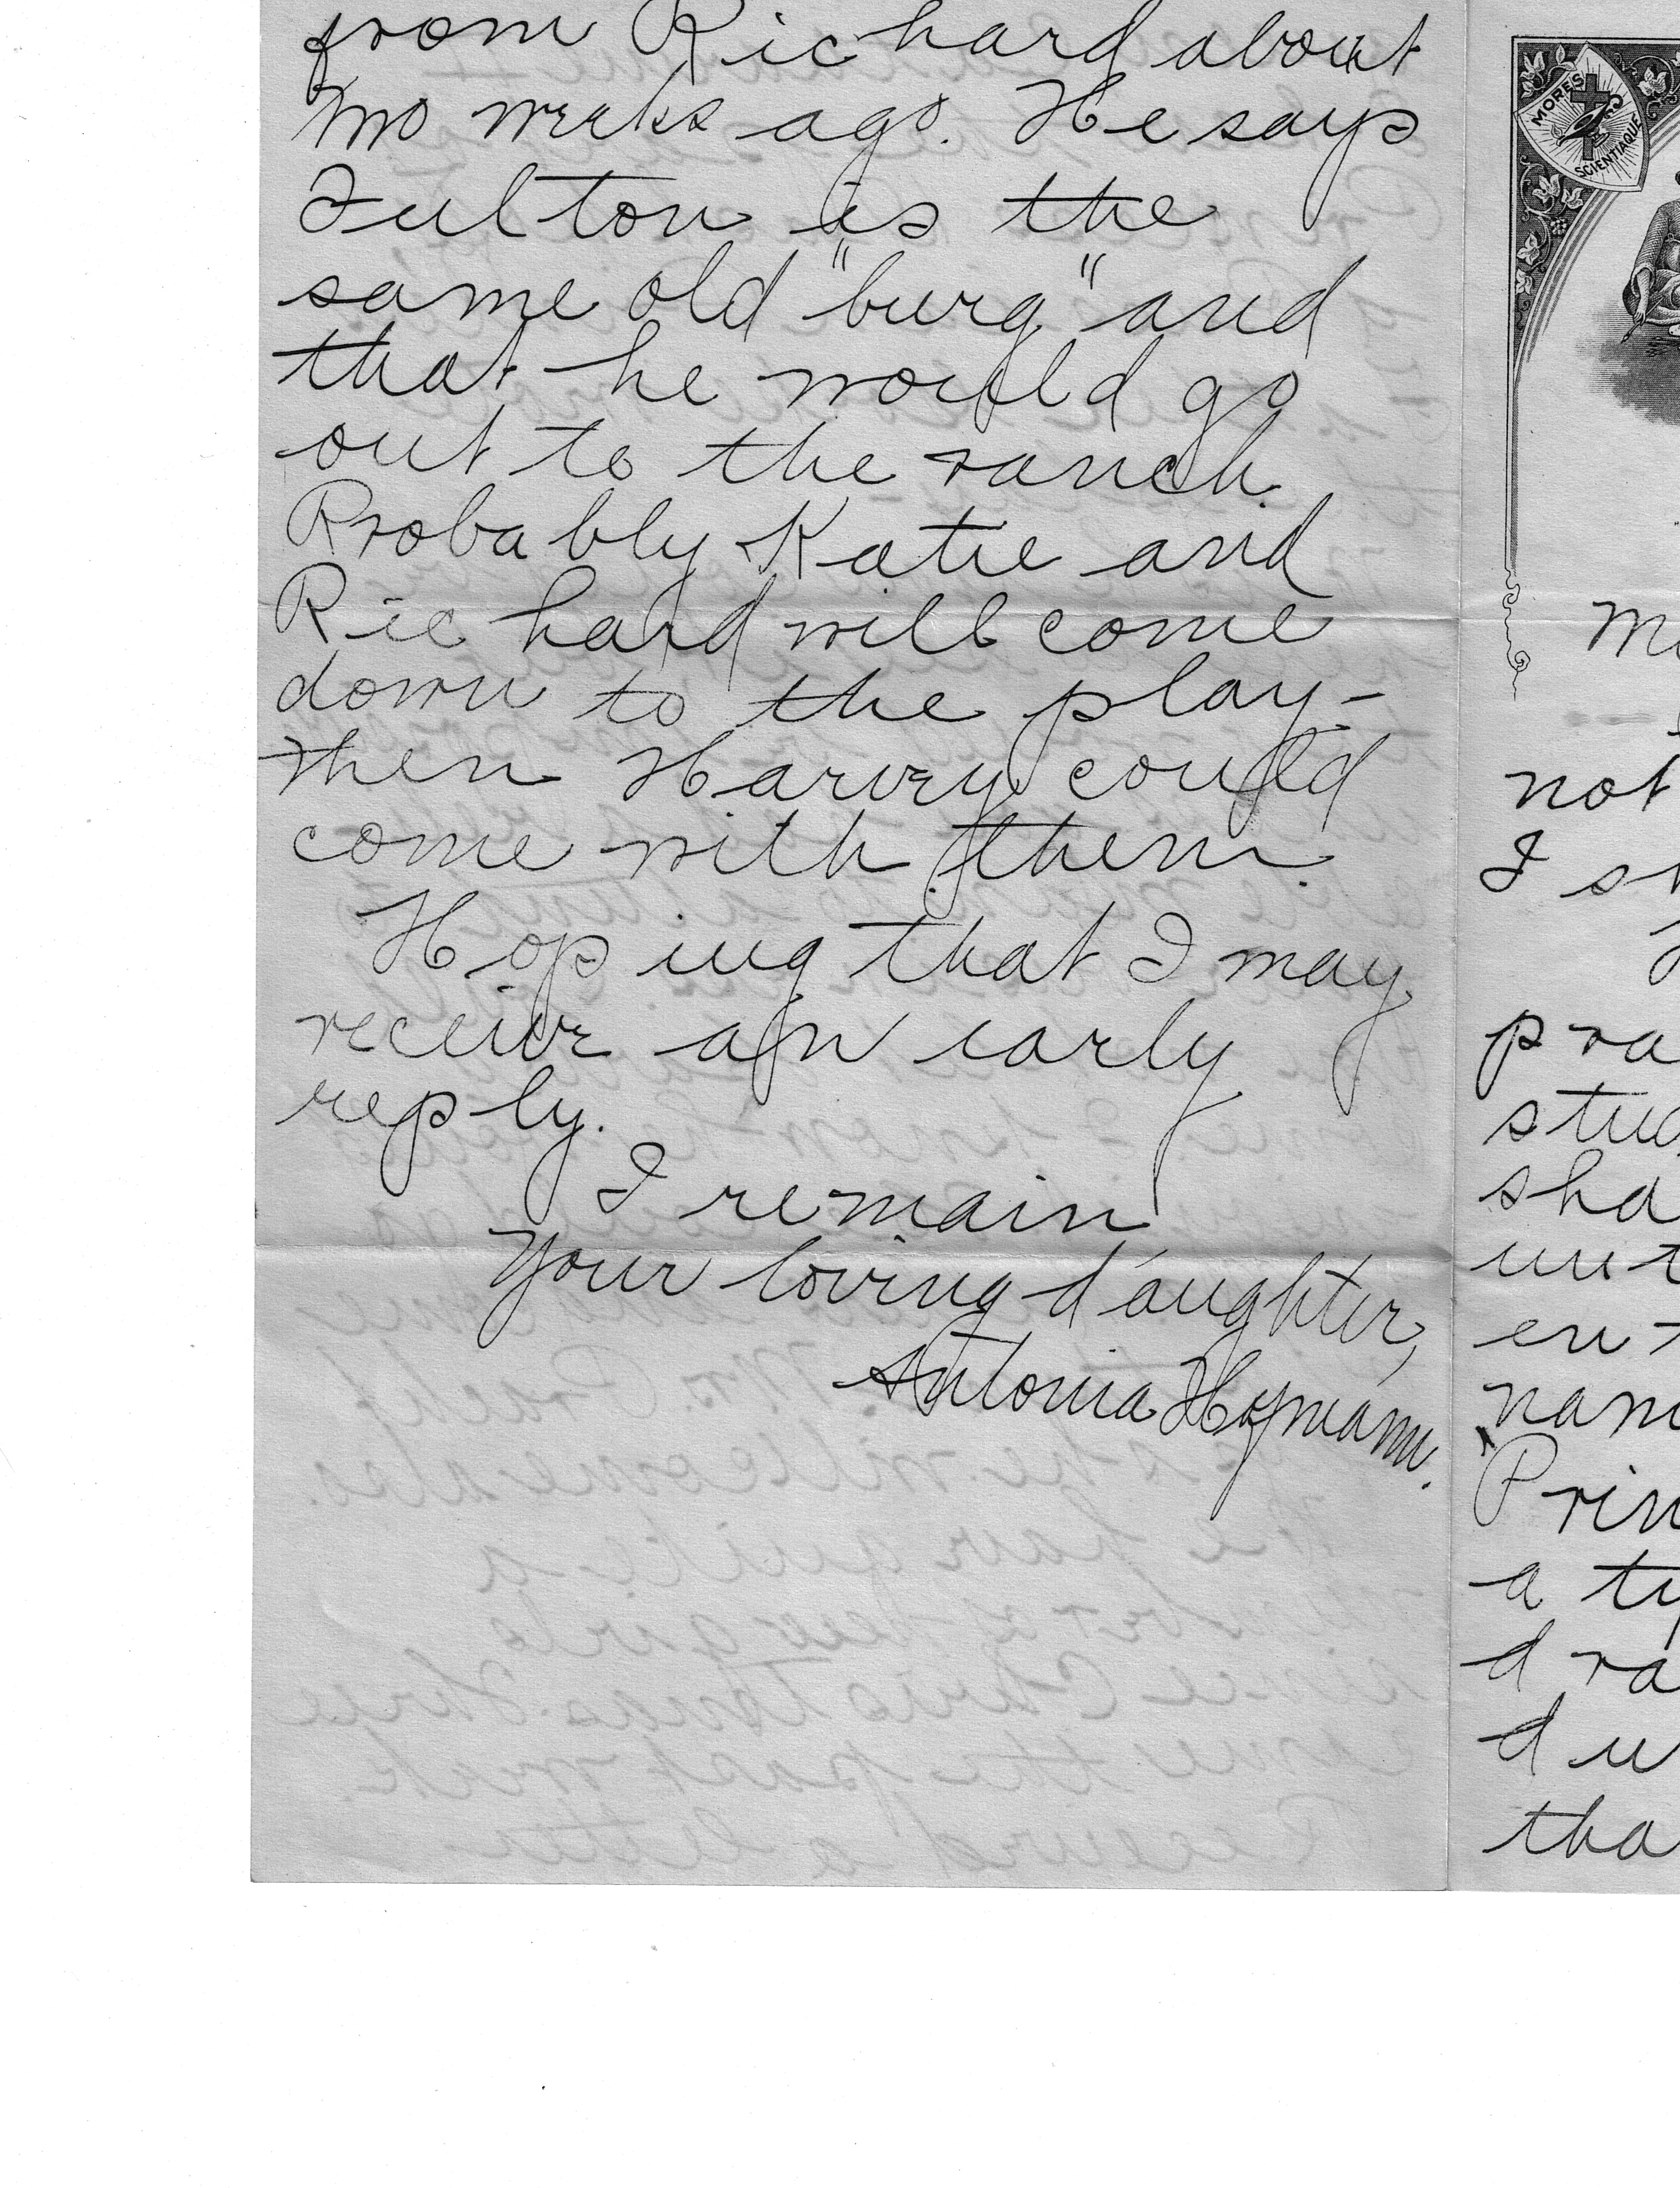 from Richard about
two weeks ago. He says
Fulton is the
same old "burg" and
that he would go
out to the ranch.
Probably Katie and
Richard will come
down to the play-
then Harvey could
come with them.
Hoping that I may
receive an early
reply.
I remain,
Your loving daughter,
Antonia
MORES
SCIENTIAQUE
not
I
pra
stud
sha
unt
ent
nam
Prin
a ty
dra
du
tha